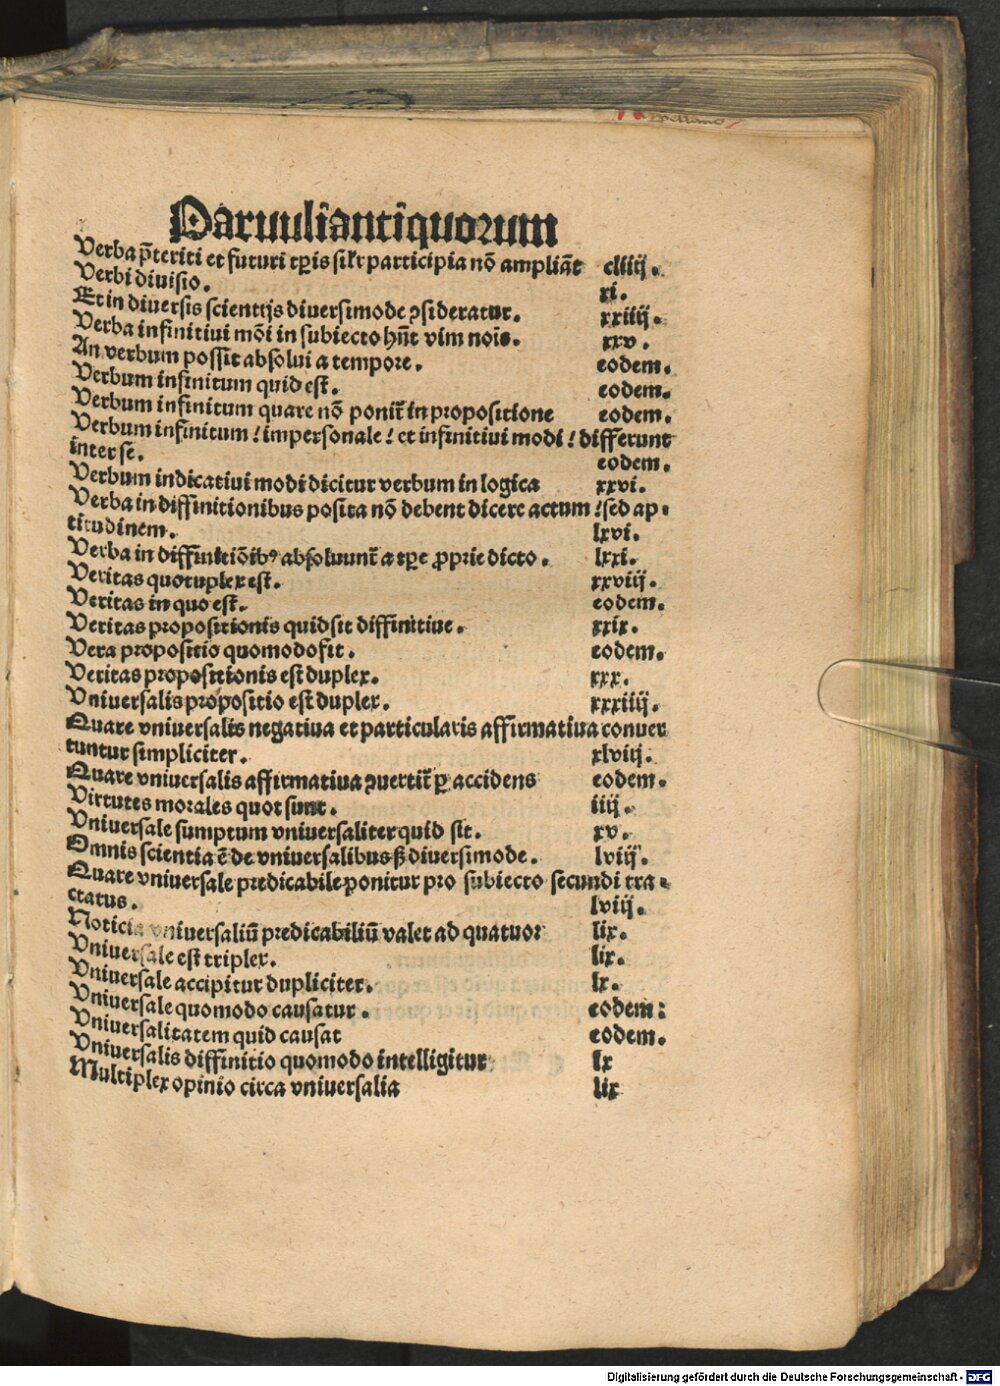 Paruuli antiquorum
Verba p̄teriti et futuri tꝑis sil'r participia nō ampliāt cliiij.
Verbi diuisio. xi.
Et in diuersis scientijs diuersimode ꝯsideratur. xxiiij.
Verba infinitiui mōi in subiecto hn̄t vim nois. xxv.
An verbum possit absolui a tempore. eodem.
Verbum infinitum quid est. eodem.
Verbum infinitum quare nō ponit̄ in propositione eodem.
Verbum infinitum / impersonale / et infinitiui modi / differunt
inter se. eodem.
Verbum indicatiui modi dicitur verbum in logica xxvi.
Verba in diffinitionibus posita nō debent dicere actum / sed ap⸗
titudinem. lxvi.
Verba in diffinitiōibꝰ absoluunt̄ a tꝑe ꝓprie dicto. lxxi.
Veritas quotuplex est. xxviij.
Veritas in quo est. eodem.
Veritas propositionis quid sit diffinitiue. xxix.
Vera propositio quomodo fit. eodem.
Veritas propositionis est duplex. xxx.
Vniuersalis propositio est duplex. xxxiiij.
Quare vniuersalis negatiua et particularis affirmatiua conuer
tuntur simpliciter. xlviij.
Quare vniuersalis affirmatiua ꝯuertit̄ ꝑ accidens eodem.
Virtutes morales quot sunt. iiij.
Vniuersale sumptum vniuersaliter quid sit. xv.
Omnis scientia ē de vniuersalibus ß diuersimode. lviij.
Quare vniuersale predicabile ponitur pro subiecto secundi tra⸗
ctatus. lviij.
Noticia vniuersaliū predicabiliū valet ad quatuor lix.
Vniuersale est triplex. lix.
Vniuersale accipitur dupliciter. lx.
Vniuersale quomodo causatur. eodem:
Vniuersalitatem quid causat eodem.
Vniuersalis diffinitio quomodo intelligitur lx
Multiplex opinio circa vniuersalia lix
Digitalisierung gefördert durch die Deutsche Forschungsgemeinschaft - DFG